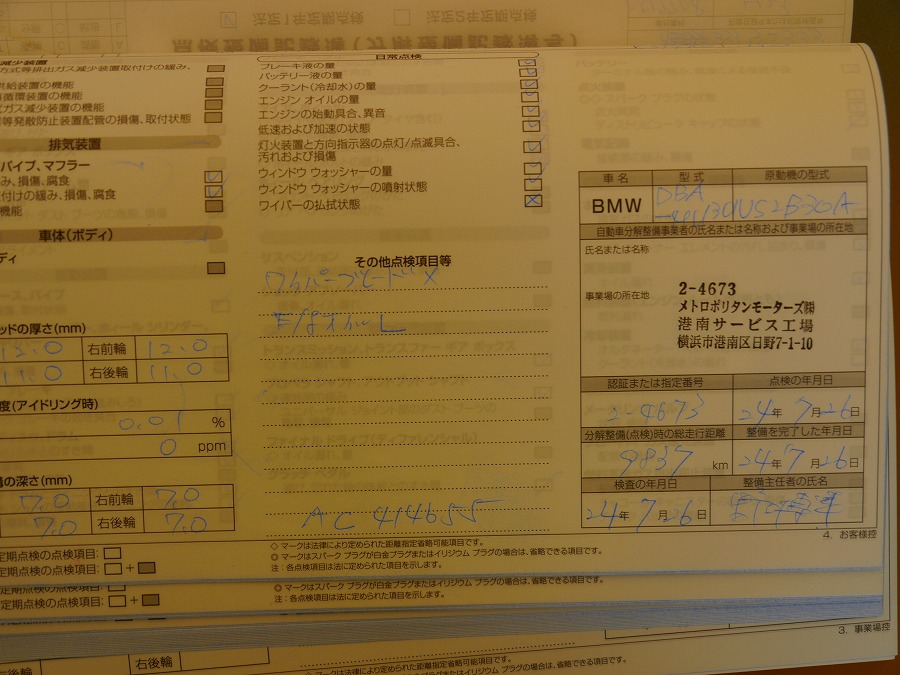 法定1年定期点検 法定2年定期点検
点検整備記録簿(分解整備記録簿)
減少装置
方式等排出ガス減少装置取付けの緩み、
供給装置の機能
循環装置の機能
ガス減少装置の機能
等発散防止装置配管の損傷、取付状態
排気装置
パイプ、マフラー
み、損傷、腐食
付けの緩み、損傷、腐食
機能
車体(ボディ)
ディ
ッドの厚さ(mm)
12.0 右前輪 12.0
11.0 右後輪 11.0
度(アイドリング時)
0.01 %
0 ppm
の深さ(mm)
7.0 右前輪 7.0
7.0 右後輪 7.0
定期点検の点検項目:
定期点検の点検項目: +
日常点検
ブレーキ液の量
バッテリー液の量
クーラント(冷却水)の量
エンジン オイルの量
エンジンの始動具合、異音
低速および加速の状態
灯火装置と方向指示器の点灯/点滅具合、
汚れおよび損傷
ウィンドウ ウォッシャーの量
ウィンドウ ウォッシャーの噴射状態
ワイパーの払拭状態
その他点検項目等
ワイパーブレード ×
E/gオイル L
AC 414655
◇ マークは法律により定められた距離指定省略可能項目です。
◎ マークはスパーク プラグが白金プラグまたはイリジウム プラグの場合は、省略できる項目です。
注:各点検項目は法に定められた項目を示します。
車名 型式 原動機の型式
BMW DBA
自動車分解整備事業者の氏名または名称および事業場の所在地
氏名または名称
事業場の所在地
2-4673
メトロポリタンモーターズ㈱
港南サービス工場
横浜市港南区日野7-1-10
認証または指定番号 点検の年月日
2-4673 24年7月26日
分解整備(点検)時の総走行距離 整備を完了した年月日
9837 km 24年7月26日
検査の年月日 整備主任者の氏名
24年7月26日
4. お客様控
◎ マークはスパーク プラグが白金プラグまたはイリジウム プラグの場合は、省略できる項目です。
定期点検の点検項目: +
注:各点検項目は法に定められた項目を示します。
3. 事業場控
右後輪
◇ マークは法律により定められた距離指定省略可能項目です。
◎ マークはスパーク プラグが白金プラグまたはイリジウム プラグの場合は、省略できる項目です。